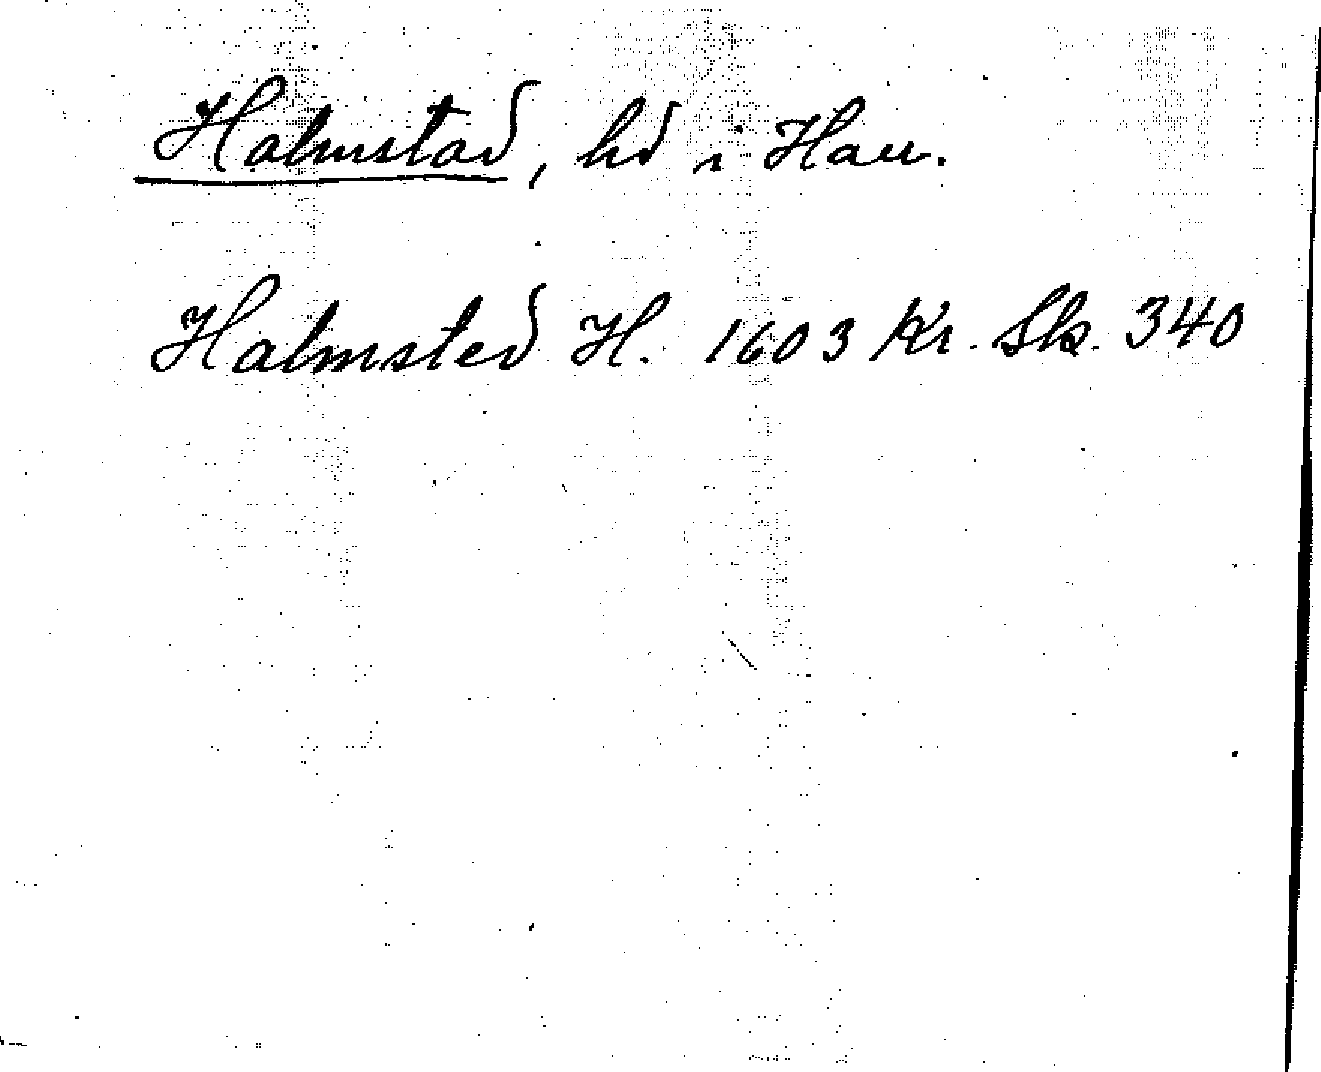 Halmstad, hd i Hall.
Halmsted H. 1603 Kr. Sk. 340